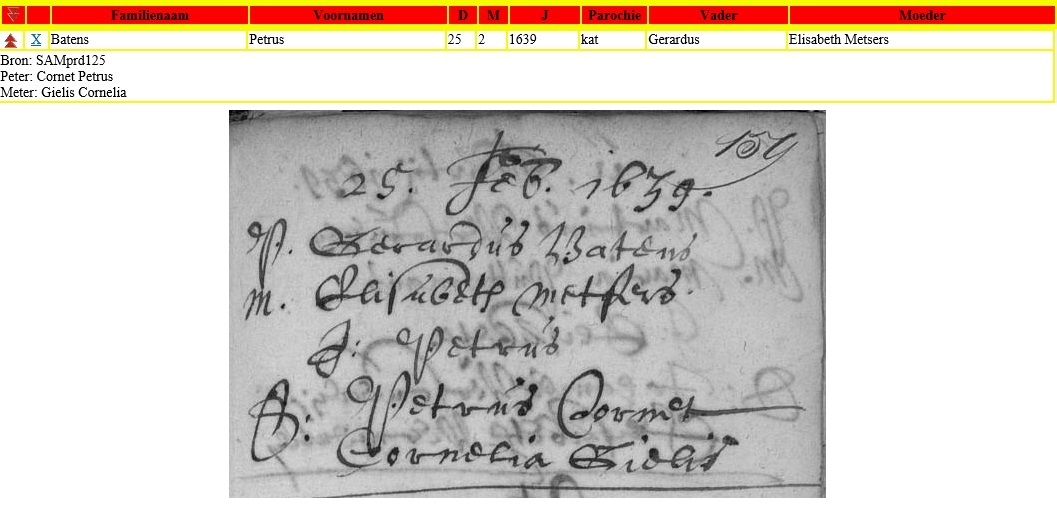 Familienaam Voornamen D M J Parochie Vader Moeder
X Batens Petrus 25 2 1639 kat Gerardus Elisabeth Metsers
Bron: SAMprd125
Peter: Cornet Petrus
Meter: Gielis Cornelia
159
25. Feb. 1639.
P. Gerardus Batens
m. Elisabeth Metsers.
J: Petrus
S: Petrus Cornet
Cornelia Gielis